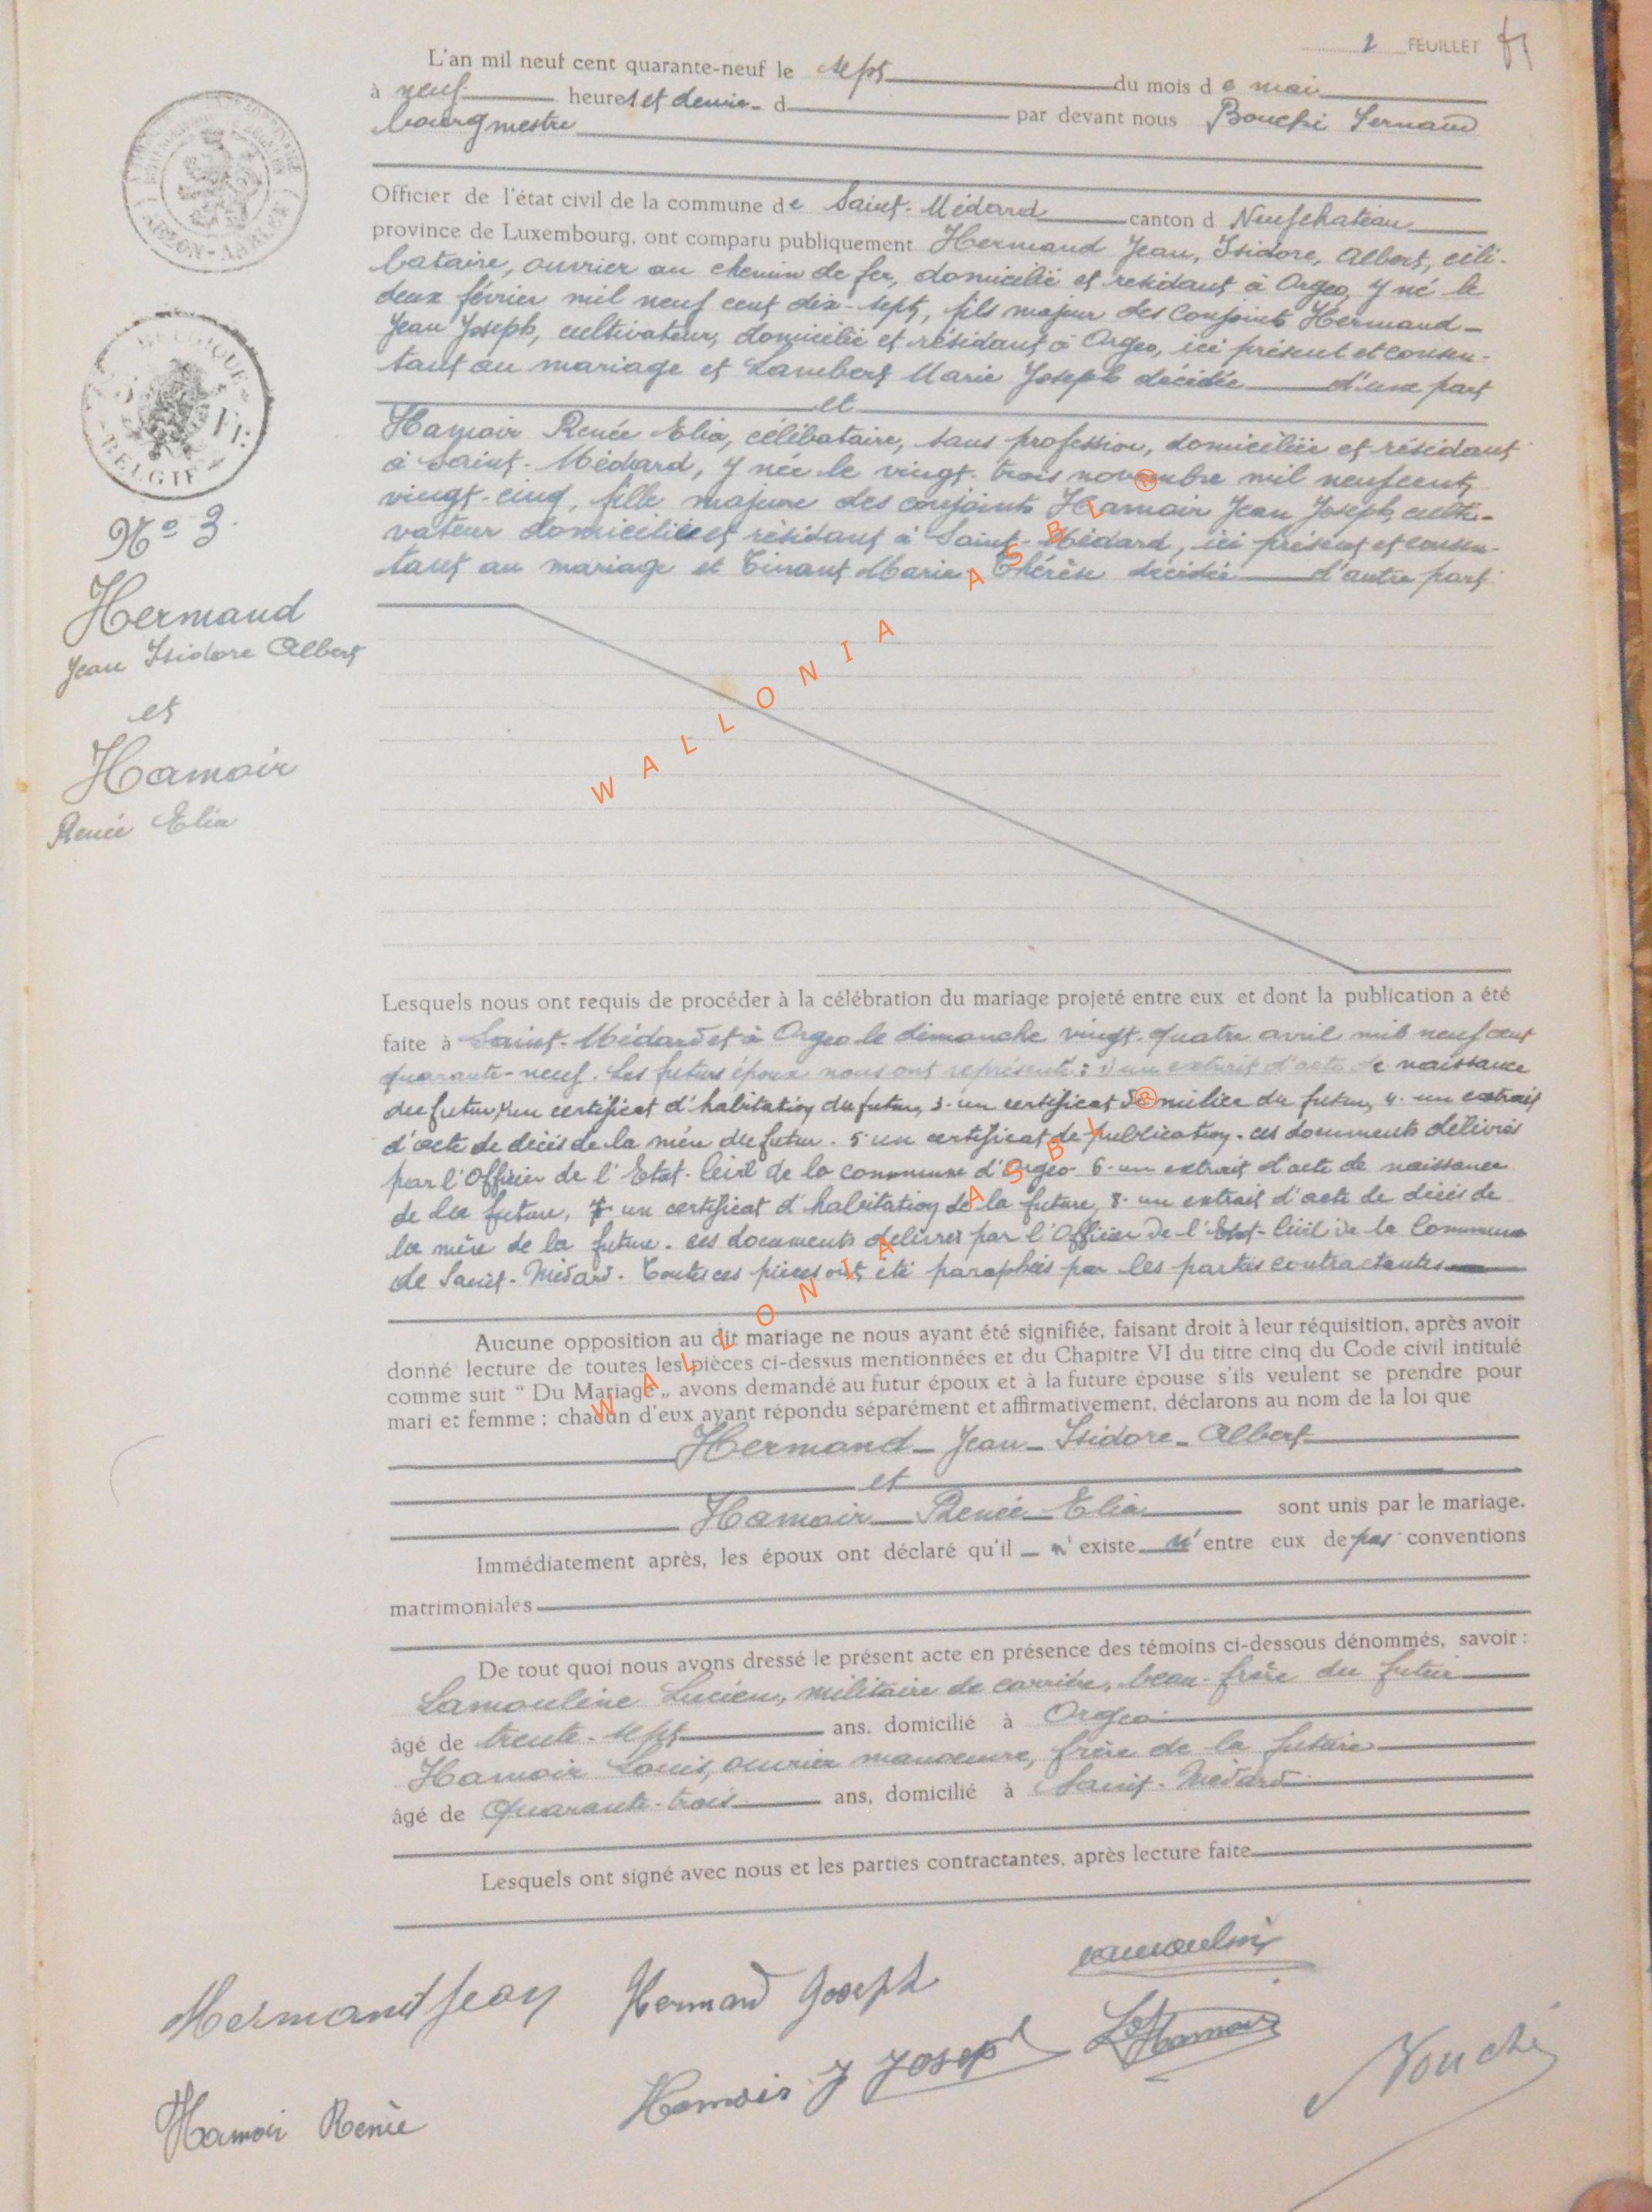 2 FEUILLET
L'an mil neuf cent quarante-neuf le sept du mois de mai
à neuf heures et demie d par devant nous Bouché Fernand
bourgmestre
Officier de l'état civil de la commune de Saint-Médard canton d Neufchateau
province de Luxembourg, ont comparu publiquement Hermand Jean, Isidore, Albert, céli-
bataire, ouvrier au chemin de fer, domicilié et résidant à Orgeo, y né le
deux février mil neuf cent dix-sept, fils majeur des conjoints Hermand-
Jean Joseph, cultivateur, domicilié et résidant à Orgeo, ici présent et consen-
tant au mariage et Lambert Marie Joseph décédée d'une part
et
Hamoir Renée Elia, célibataire, sans profession, domiciliée et résidant
à Saint-Médard, y née le vingt-trois novembre mil neuf cent
vingt-cinq, fille majeure des conjoints Hamoir Jean Joseph, culti-
vateur domicilié et résidant à Saint-Médard, ici présent et consen-
tant au mariage et Tinant Marie-Thérèse décédée d'autre part
BELGIQUE
FR.
BELGIE
ARLON-AARLEN
No 3.
Hermand
Jean Isidore Albert
et
Hamoir
Renée Elia
WALLONIA ASBL ®
Lesquels nous ont requis de procéder à la célébration du mariage projeté entre eux et dont la publication a été
faite à Saint-Médard et à Orgeo le dimanche vingt-quatre avril mil neuf cent
quarante-neuf. Les futurs époux nous ont représenté: 1) un extrait d'acte de naissance
du futur, un certificat d'habitation du futur, 3. un certificat de milice du futur, 4. un extrait
d'acte de décès de la mère du futur. 5. un certificat de publication. ces documents délivrés
par l'Officier de l'Etat-Civil de la commune d'Orgeo. 6. un extrait d'acte de naissance
de la future, 7. un certificat d'habitation de la future, 8. un extrait d'acte de décès de
la mère de la future. ces documents délivrés par l'Officier de l'Etat-Civil de la Commune
de Saint-Médard. Toutes ces pièces ont été paraphées par les parties contractantes
WALLONIA ASBL ®
Aucune opposition au dit mariage ne nous ayant été signifiée, faisant droit à leur réquisition, après avoir
donné lecture de toutes les pièces ci-dessus mentionnées et du Chapitre VI du titre cinq du Code civil intitulé
comme suit “ Du Mariage „ avons demandé au futur époux et à la future épouse s'ils veulent se prendre pour
mari et femme ; chacun d'eux ayant répondu séparément et affirmativement, déclarons au nom de la loi que
Hermand - Jean - Isidore - Albert
et
Hamoir - Renée - Elia sont unis par le mariage.
Immédiatement après, les époux ont déclaré qu'il n' existe n' entre eux de pas conventions
matrimoniales
De tout quoi nous avons dressé le présent acte en présence des témoins ci-dessous dénommés, savoir :
Lamouline Lucien, militaire de carrière, beau-frère du futur
âgé de trente-sept ans, domicilié à Orgeo
Hamoir Louis, ouvrier manoeuvre, frère de la future
âgé de quarante-trois ans, domicilié à Saint-Médard
Lesquels ont signé avec nous et les parties contractantes, après lecture faite
Hermand Jean Hermand Joseph Lamouline
Hamoir Renée Hamoir J Joseph Ls Hamoir Bouché